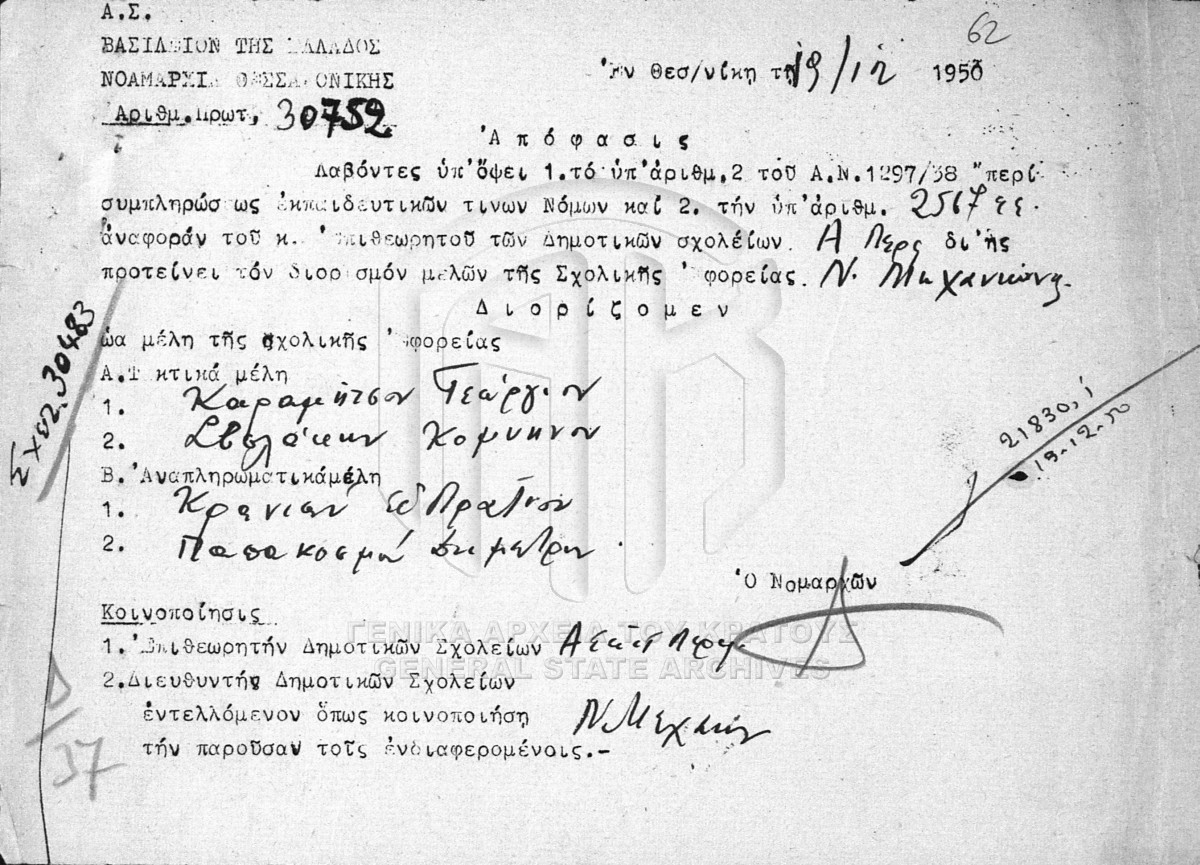 62
Α.Σ.
ΒΑΣΙΛΕΙΟΝ ΤΗΣ ΕΛΛΑΔΟΣ
ΝΟΑΜΑΡΧΙΑ ΘΕΣΣΑΛΟΝΙΚΗΣ
Ἐν Θεσ/νίκη τῇ 19/12 1950
Ἀριθμ.Πρωτ, 30752
Ἀ π ό φ α σ ι ς
Λαβόντες ὑπ'ὄψει 1.τό ὑπ'ἀριθμ.2 τοῦ Α.Ν.1297/38 "περί
συμπληρώσεως ἐκπαιδευτικῶν τινων Νόμων καί 2. τήν ὑπ'ἀριθμ. 2567 ἐ.ἔ.
ἀναφοράν τοῦ κ. Ἐπιθεωρητοῦ τῶν Δημοτικῶν σχολείων. Α Περ δι'ἧς
προτείνει τόν διορισμόν μελῶν τῆς Σχολικῆς Ἐφορείας. Ν. Μηχανιώνας
Δ ι ο ρ ί ζ ο μ ε ν
ὡα μέλη τῆς σχολικῆς Ἐφορείας
Α.Τακτικά μέλη
1. Καραμήτσον Γεώργιον
2. Κομνηνον
Β.Ἀναπληρωματικάμέλη
1.
2. Παπακοσμά Δημήτριον.
Σχετ.30483
21830,1
19.12.50
Ὁ Νομαρχῶν
Κοινοποίησις
1.Ἐπιθεωρητήν Δημοτικῶν Σχολείων Περ.
2.Διευθυντήν Δημοτικῶν Σχολείων
ἐντελλόμενον ὅπως κοινοποιήση Ν.Μηχαν
τήν παροῦσαν τοῖς ἐνδιαφερομένοις.-
Δ/37
ΓΕΝΙΚΑ ΑΡΧΕΙΑ ΤΟΥ ΚΡΑΤΟΥΣ
GENERAL STATE ARCHIVES